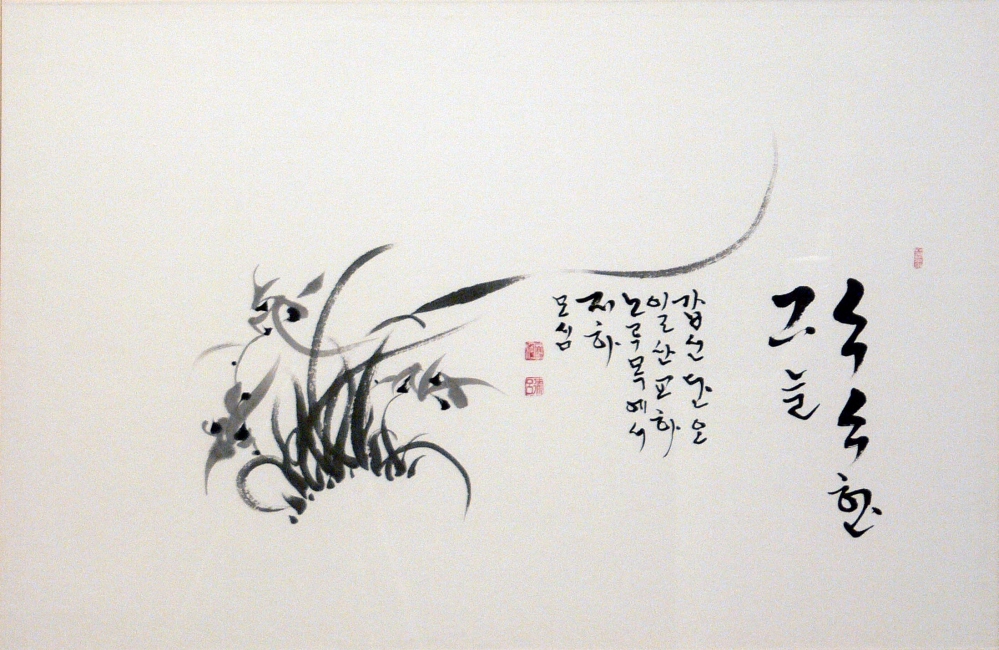 수수한
그늘
갑신단오
일산교하
노루목에서
지하
모심